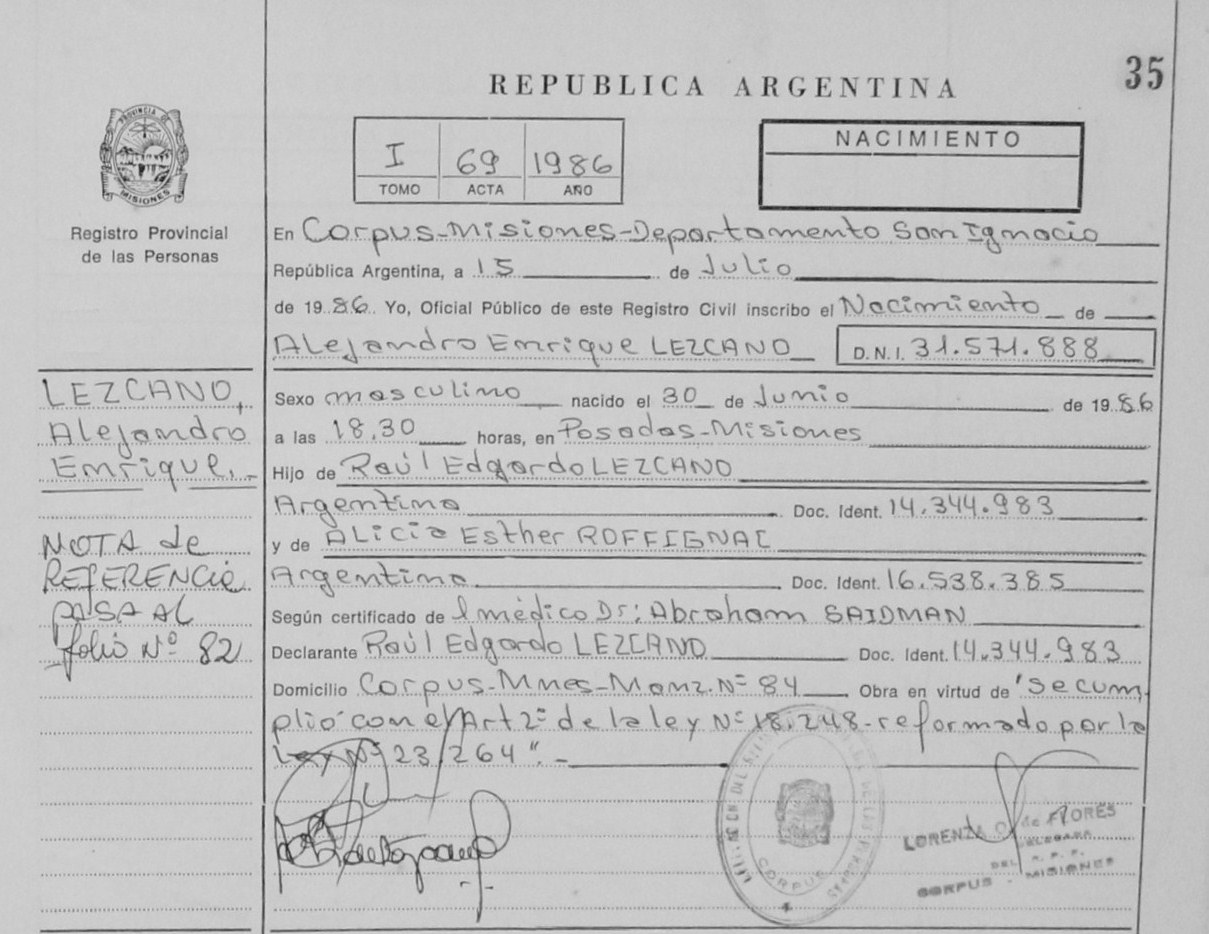 35
REPUBLICA ARGENTINA
PROVINCIA DE MISIONES
Registro Provincial
de las Personas
I 69 1986
TOMO ACTA AÑO
NACIMIENTO
En Corpus-Misiones-Departamento San Ignacio
República Argentina, a 15 de Julio
de 1986. Yo, Oficial Público de este Registro Civil inscribo el Nacimiento de
Alejandro Enrique LEZCANO D.N.I. 31.571.888
LEZCANO,
Alejandro
Enrique.-
Sexo masculino nacido el 30 de Junio de 1986
a las 18,30 horas, en Posadas-Misiones
Hijo de Raúl Edgardo LEZCANO
Argentino Doc. Ident. 14.344.983
y de Alicia Esther ROFFIGNAC
Argentina Doc. Ident. 16.538.385
Según certificado de l médico Dr: Abraham SAIDMAN
Declarante Raúl Edgardo LEZCANO Doc. Ident. 14.344.983
Domicilio Corpus-Mnes-Manz. Nº 84 Obra en virtud de "Se cum
plio con el Art 2º de la ley Nº 18.248-reformado por la
Ley Nº 23.264".-
NOTA de
REFERENCIA
PASA AL
folio Nº 82
CORPUS
LORENZA O. de FLORES
DELEGADA
DEL R. P. P.
CORPUS - MISIONES